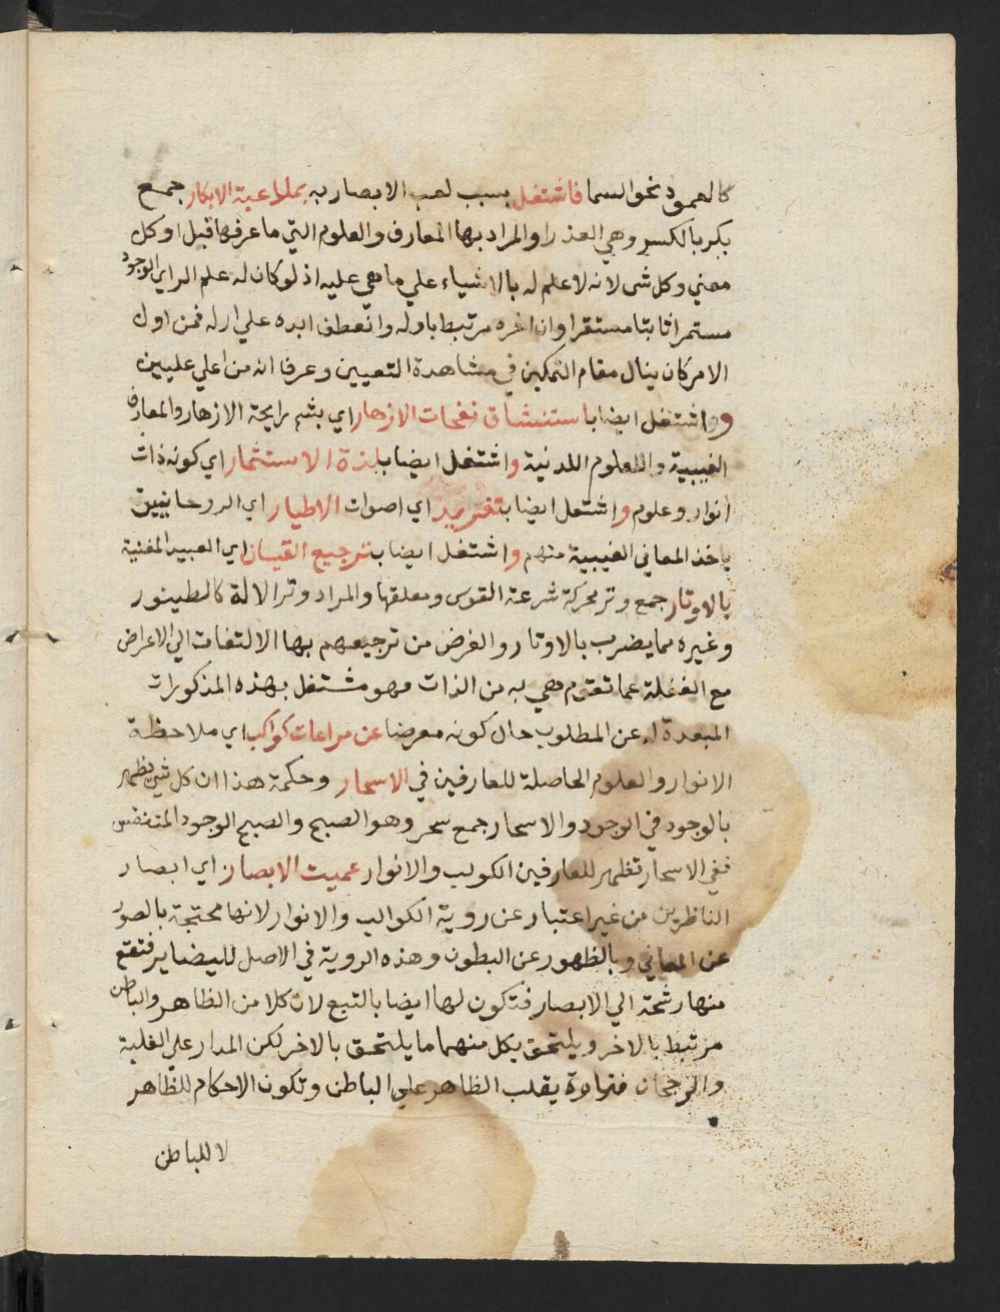 كالعمود نحو السما فاشتغل بسبب لعب الابصار به بملاعبة الابكار جمع
بكر بالكسر وهي العذرا والمراد بها المعارف والعلوم التي ما عرفها قبل او كل
معني وكل شى لانه لا علم له بالاشياء علي ما هي عليه اذ لو كان له علم الراي الوجود
مستمرا ثابتا مستقرا وان اخره مرتبط باوله وانعطف ابده علي ازله فمن اول
الامر كان ينال مقام التمكين في مشاهدة التعيين وعرف انه من اعلي عليين
واشتغل ايضا باستنشاق نفحات الازهار اي بشم رايحة الازهار والمعارف
الغيبية والعلوم اللدنية واشتغل ايضا بلذة الاستثمار اي كونه ذات
انوار وعلوم واشتغل ايضا بتغريد اي اصوات الاطيار اي الروحانيين
ياخذ المعاني الغيبية منهم واشتغل ايضا بترجيع القيان اي العبيد المغنية
بالاوتار جمع وتر محركة شرعة القوس ومعلقها والمراد وتر الالة كالطينور
وغيره مما يضرب بالاوتار والغرض من ترجيعهم بها الالتفات الي الاعراض
مع الغفلة عما تقوم هي به من الذات فهو مشتغل بهذه المذكورات
المبعدة له عن المطلوب حال كونه معرضا عن مراعات كواكب اي ملاحظة
الانوار والعلوم الحاصلة للعارفين في الاسحار وحكمة هذا ان كل شي يظهر
بالوجود في الوجود والاسحار جمع سحر وهو الصبح والصبح الوجود المتنفس
ففي الاسحار تظهر للعارفين الكواكب والانوار عميت الابصار اي ابصار
الناظرين من غير اعتبار عن روية الكواكب والانوار لانها محتجبة بالصور
عن المعاني وبالظهور عن البطون وهذه الروية في الاصل للبصاير فتقع
منها رشحة الي الابصار فتكون لها ايضا بالتبع لان كلا من الظاهر والباطن
مرتبط بالاخر ويلتحق بكل منهما ما يلتحق بالاخر لكن المدار علي الغلبة
والرجحان فتارة يغلب الظاهر علي الباطن وتكون الاحكام للظاهر
لا للباطن